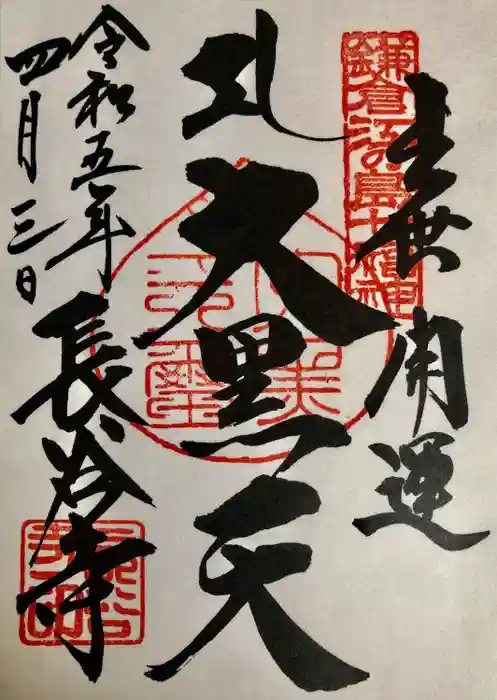 鎌倉江の島七福神
出世 開運
大黒天
令和五年
四月三日
長谷寺